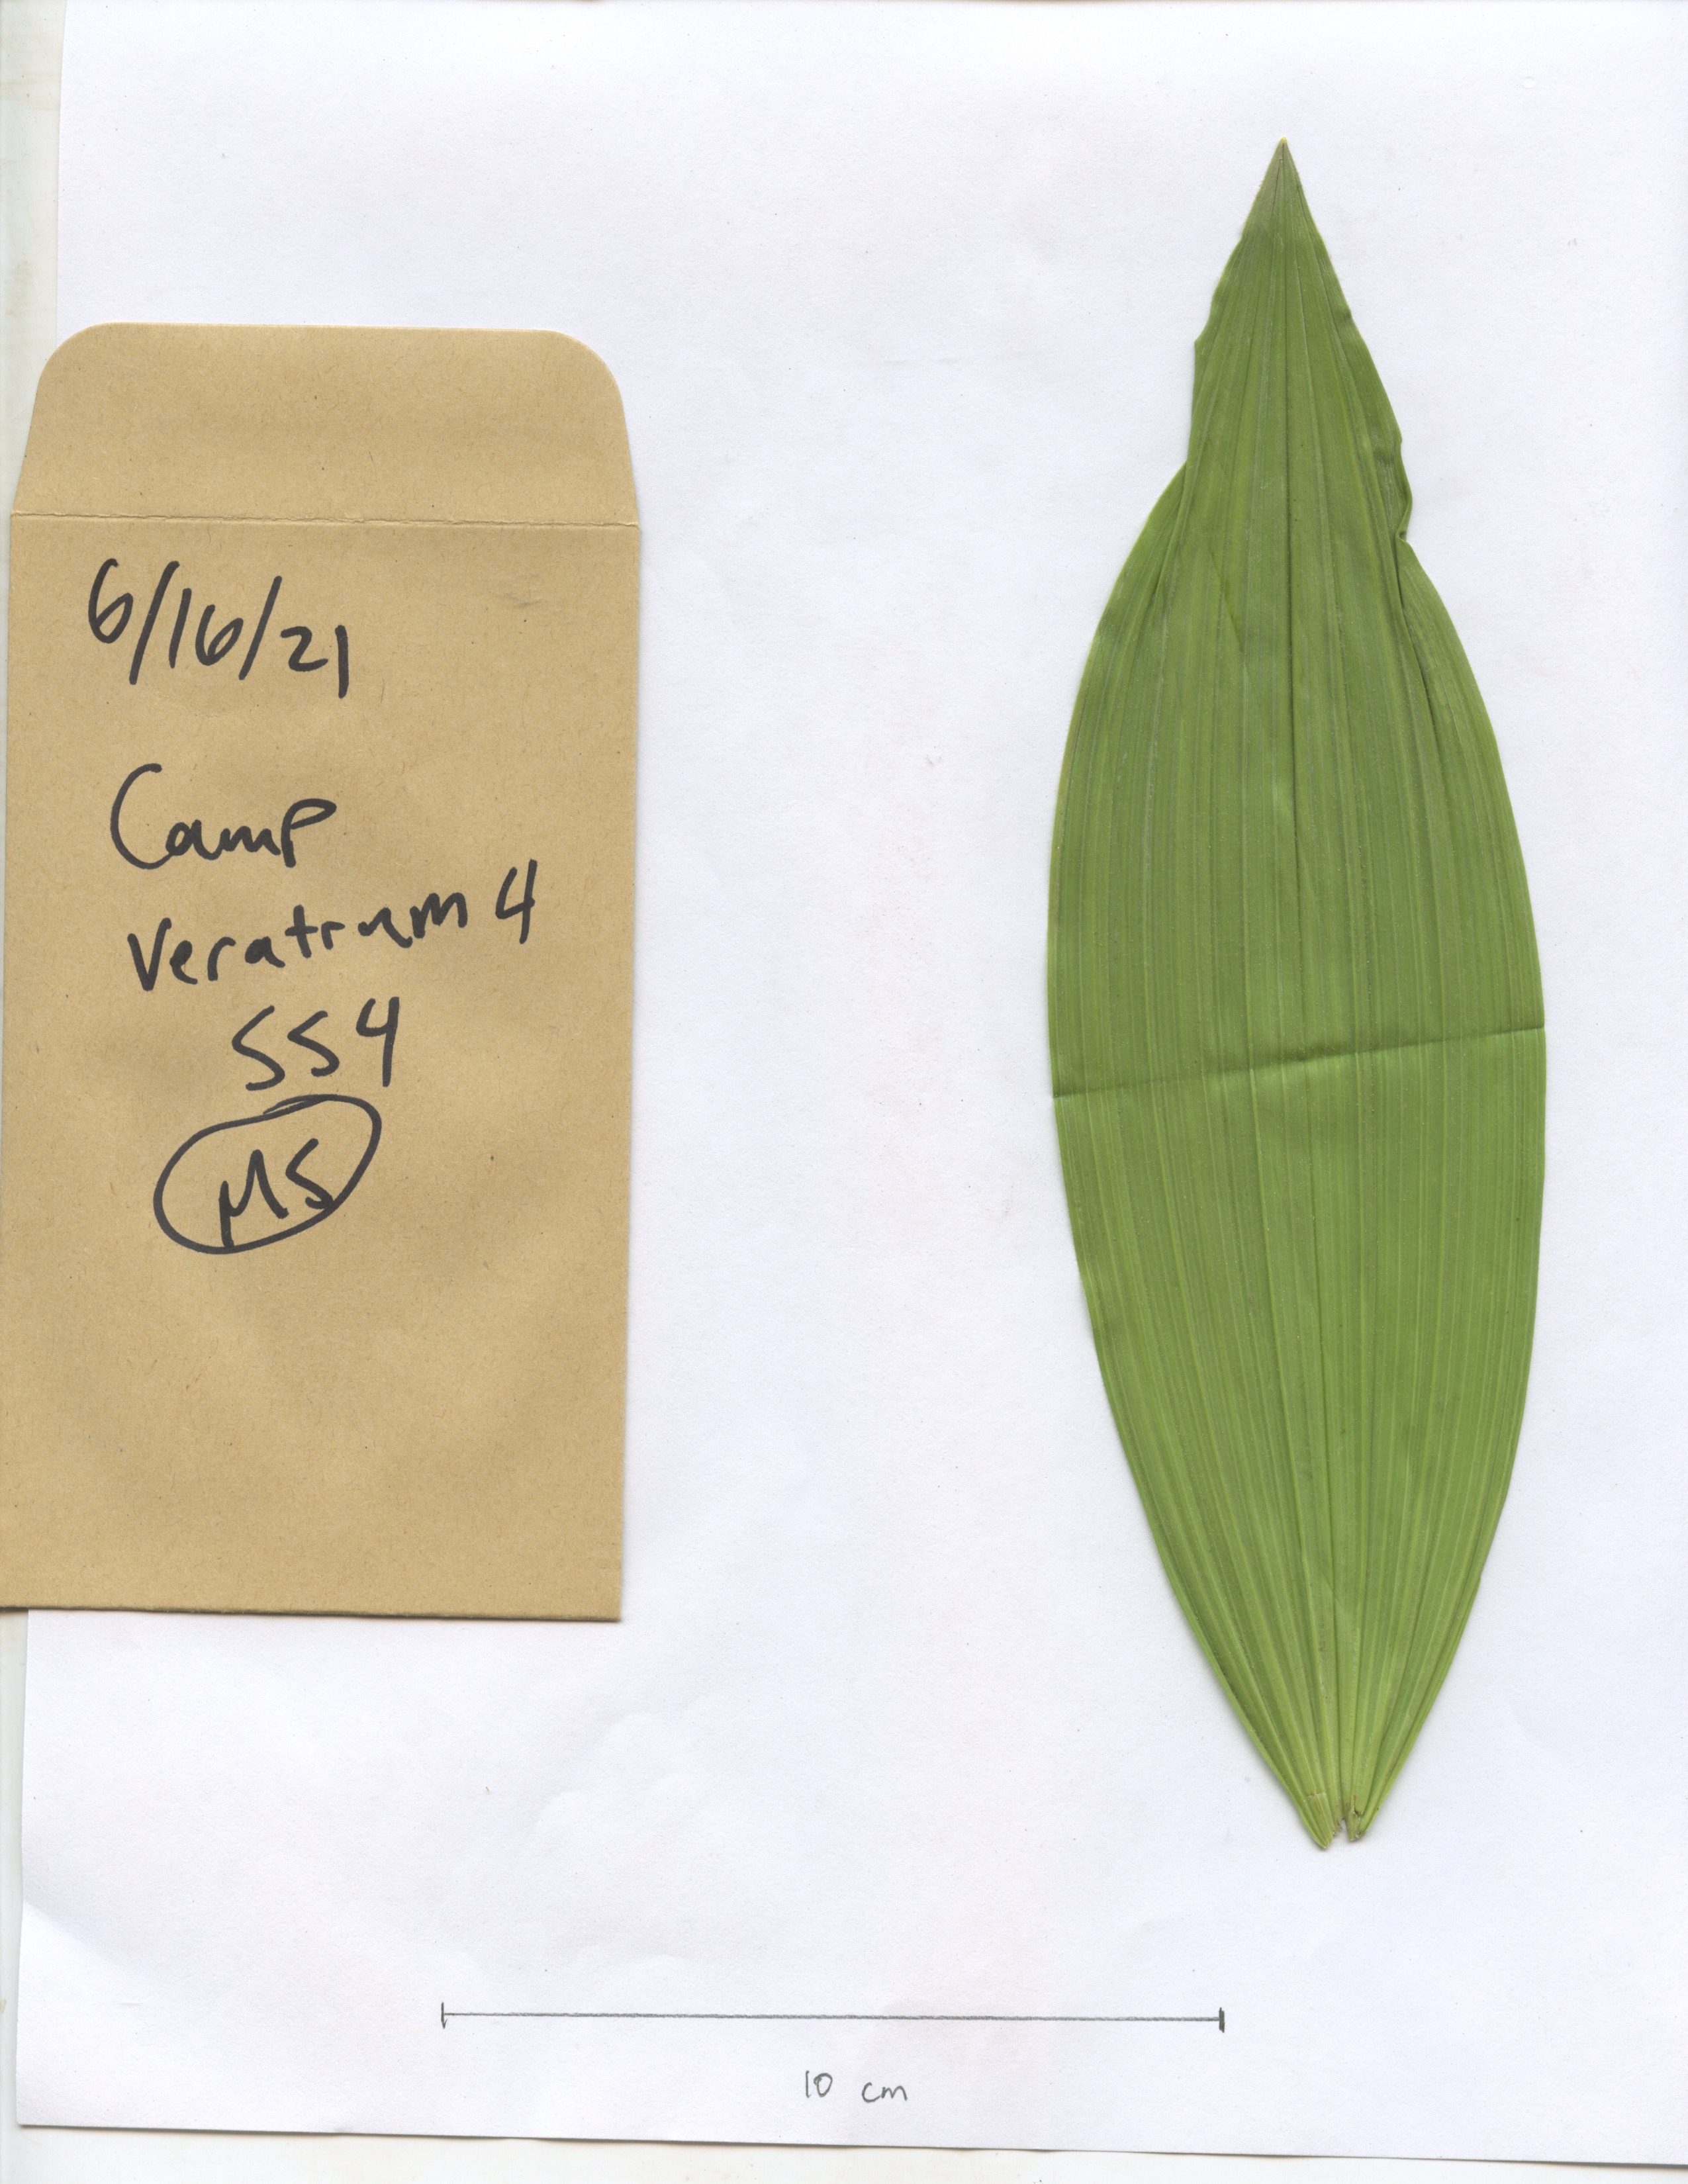 6/16/21
Camp
Veratrum 4
SS4
MS
10 cm